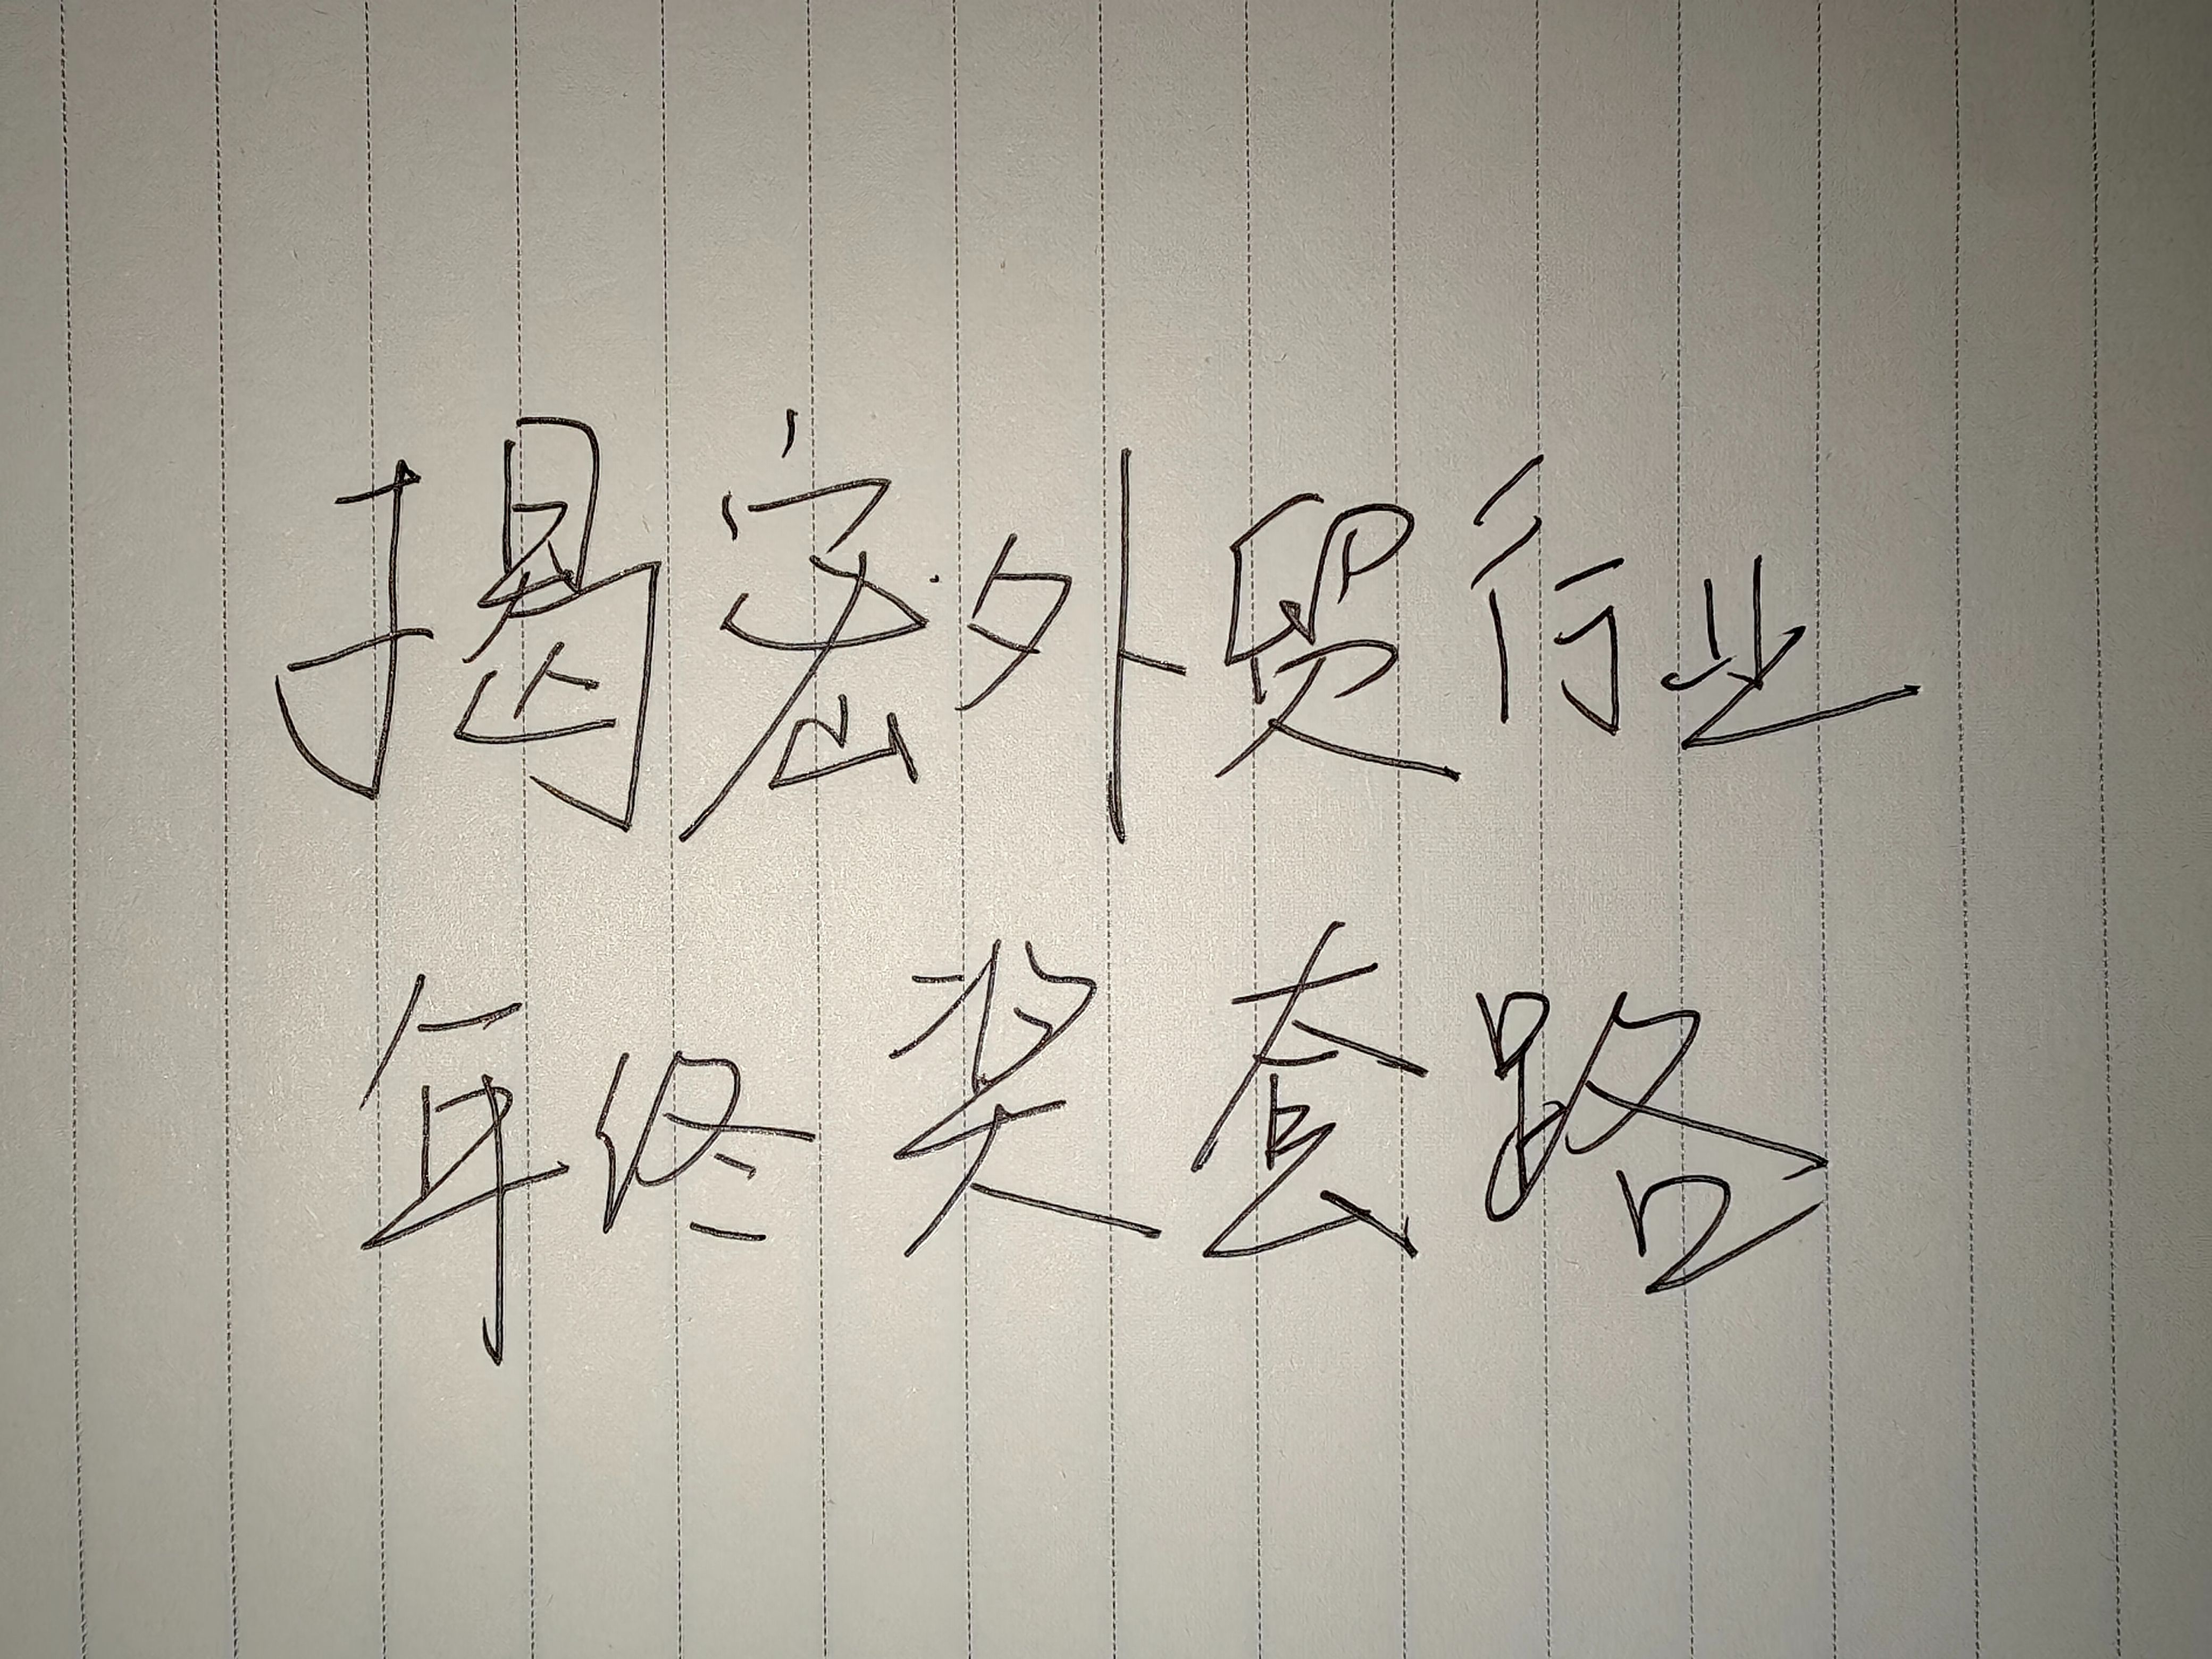 揭密外贸行业
年终奖套路